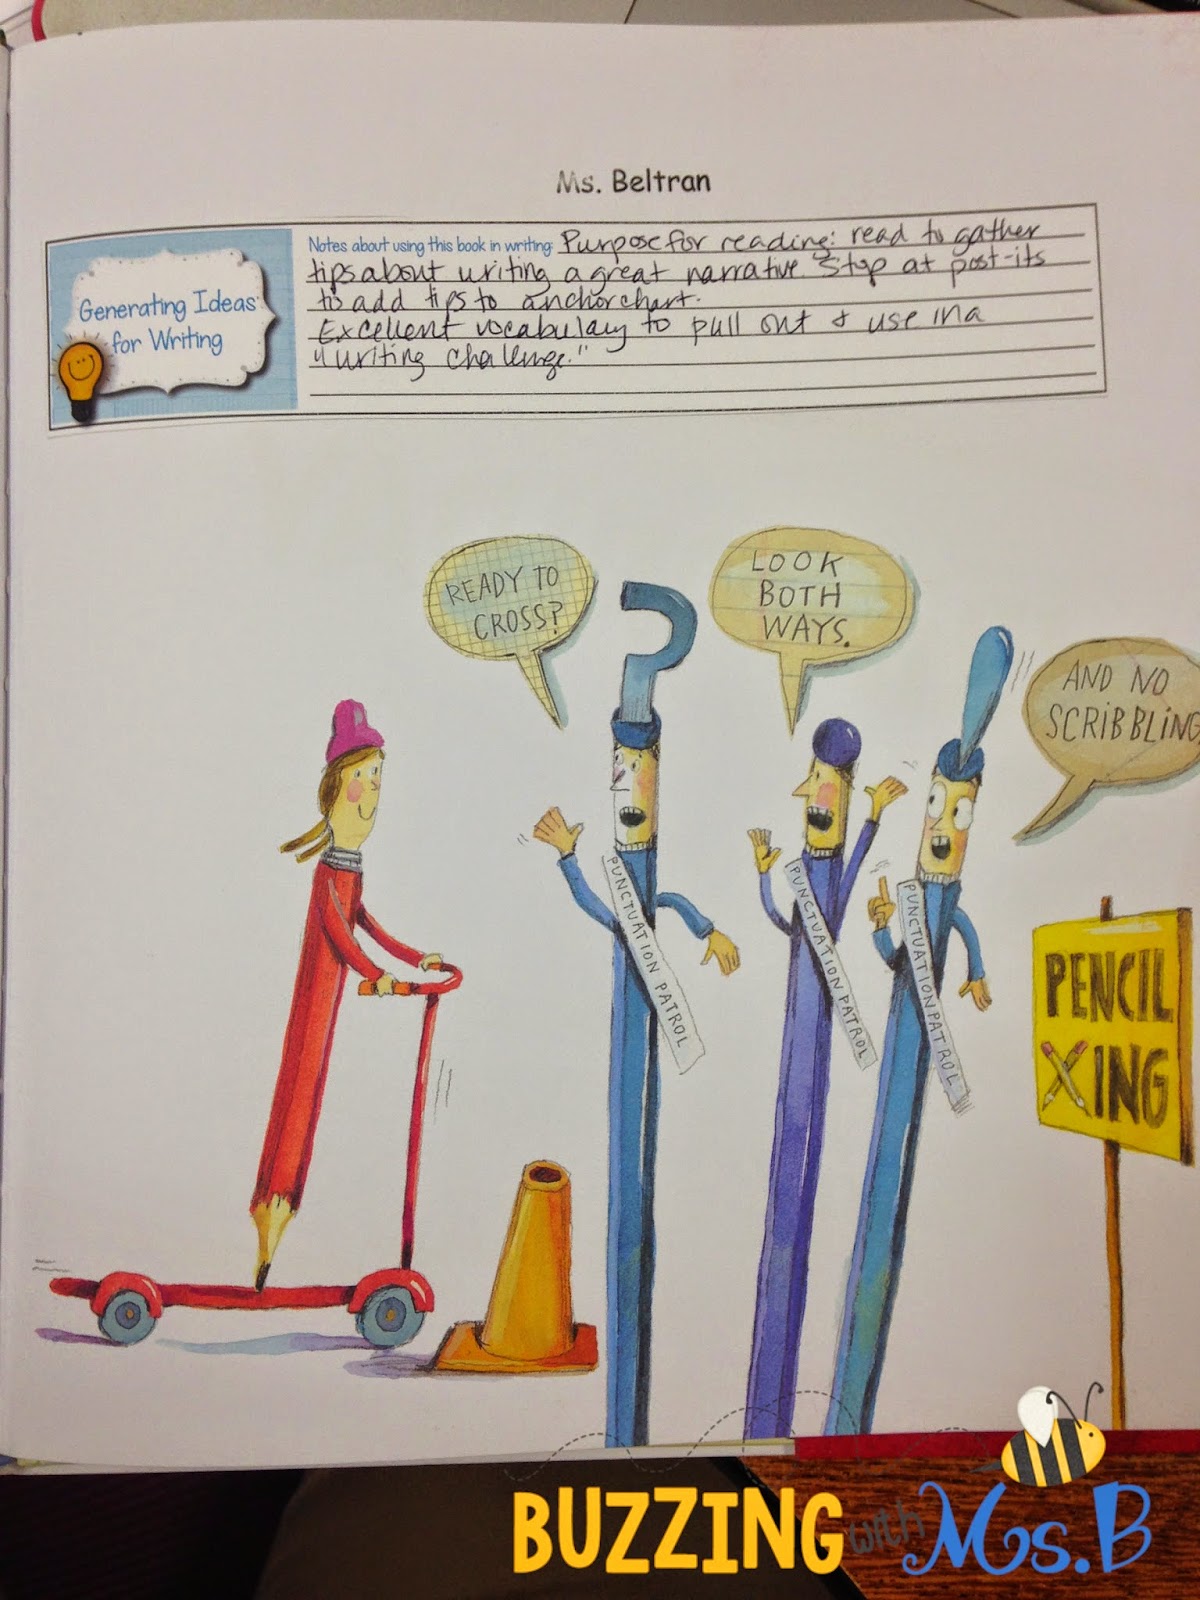 Ms. Beltran
Generating Ideas
for Writing
Notes about using this book in writing: Purpose for reading: read to gather
tips about writing a great narrative. Stop at post-its
to add tips to anchor chart.
Excellent vocabulary to pull out & use in a
"writing challenge."
READY TO
CROSS?
LOOK
BOTH
WAYS.
AND NO
SCRIBBLING
PUNCTUATION PATROL
PUNCTUATION PATROL
PUNCTUATION PATROL
PENCIL
XING
BUZZING with Ms. B